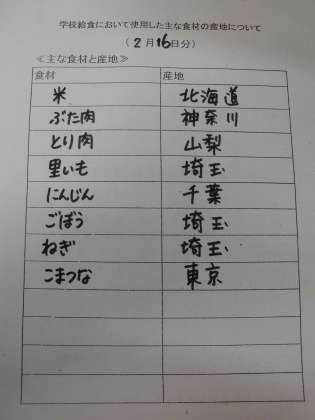 学校給食において使用した主な食材の産地について
(2月16日分)
≪主な食材と産地≫
食材 産地
米 北海道
ぶた肉 神奈川
とり肉 山梨
里いも 埼玉
にんじん 千葉
ごぼう 埼玉
ねぎ 埼玉
こまつな 東京